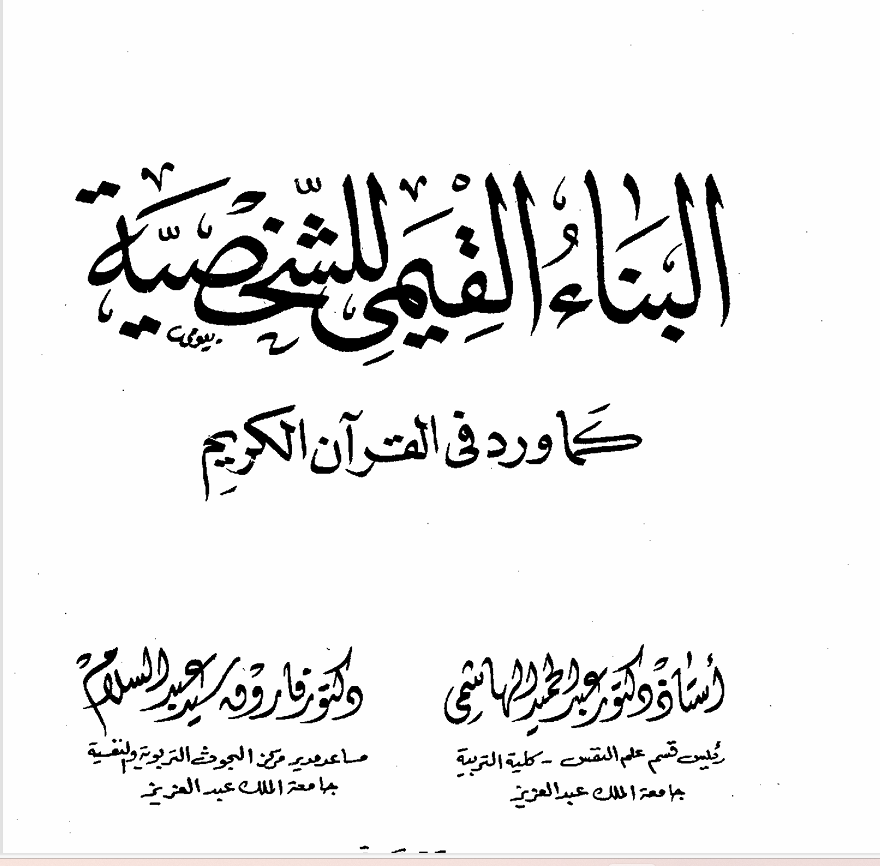 البناءُ القِيمي للشّخصيّة
بيومى
كما ورد فى القرآن الكريم
أستاذ دكتور عبدالحميد الهاشمي
رئيس قسم علم النفس - كلية التربية
جامعة الملك عبدالعزيز
دكتور فاروق سيد عبدالسلام
مساعد مدير مركز البحوث التربوية والنفسية
جامعة الملك عبدالعزيز